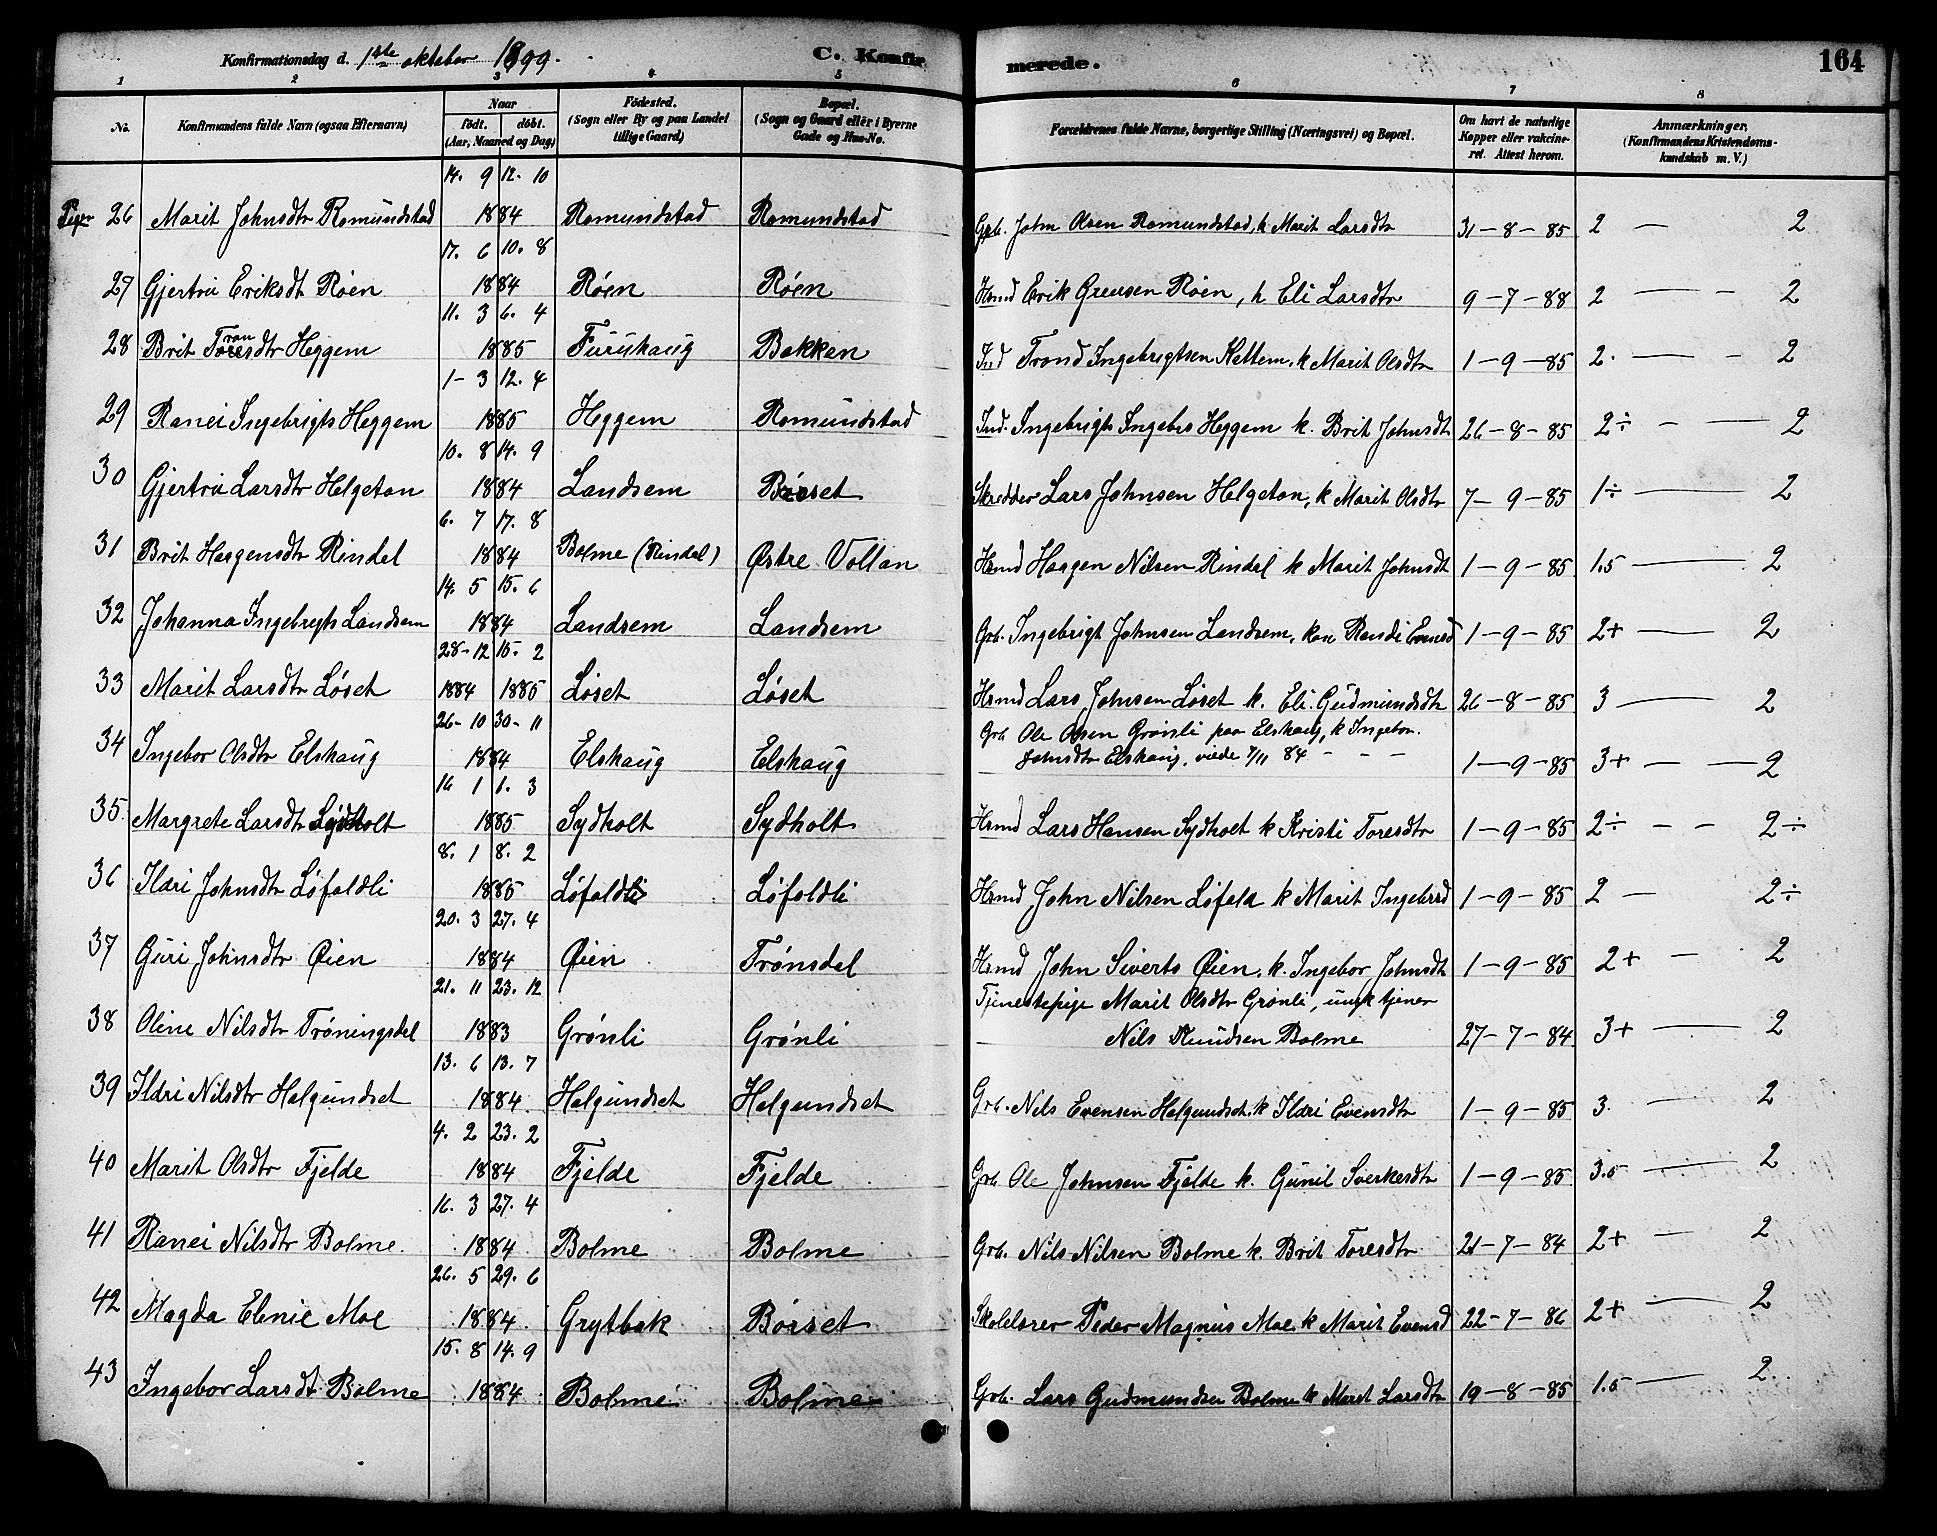 Konfirmationsdag d. 1ste oktober 1899. C. Konfirmerede. 164
1 2 3 4 5 6 7 8
No. Konfirmandens fulde Navn (ogsaa Efternavn) Naar født. døbt. (Aar, Maaned og Dag) Fødested. (Sogn eller By og paa Landet tillige Gaard) Bopæl. (Sogn og Gaard eller i Byerne Gade og Hus-No. Forældrenes fulde Navne, borgerlige Stilling (Næringsvei) og Bopæl. Om havt de naturlige Kopper eller vakcineret. Attest herom. Anmærkninger. (Konfirmandens Kristendomskundskab m. V.)
14. 9 12. 10
Piger 26 Marit Johnsdtr Romundstad 1884 Romundstad Romundstad Grb. John Olsen Romundstad, k Marit Larsdtr 31-8-85 2 — 2
17. 6 10. 8
27 Gjertru Eriksdt Røen 1884 Røen Røen Hsmd Erik Greusen Røen, k Eli Larsdtr 9-7-88 2 — - 2
11. 3 6. 4
28 Brit Tronsdtr Heggem 1885 Furuhaug Bakken Ind Trond Ingebrigtsen Kattem, k Marit Olsdtr 1-9-85 2. — - 2
1- 3 12. 4
29 Ranei Ingebrigts Heggem 1885 Heggem Romundstad Ind. Ingebrigt Ingebrs Heggem k. Brit Johnsdt 26-8-85 2÷ - — 2
10. 8 14. 9
30 Gjertru Larsdtr Helgeton 1884 Landsem Børset Skredder Lars Johnsen Helgeton, k Marit Olsdtr 7-9-85 1÷ — 2
6. 7 17. 8
31 Brit Haagensdtr Rindal 1884 Bolme (Rindal) Østre Vollan Hsmd Haagen Nilsen Rindal k Marit Johnsdt 1-9-85 1.5 — 2
14. 5 15. 6
32 Johanna Ingebrigts Landsem 1884 Landsem Landsem Grb. Ingebrigt Johnsen Landsem, kone Randi Evensd 1-9-85 2+ — 2
28-12 15. 2
33 Marit Larsdtr Løset 1884 1885 Løset Løset Hsmd Lars Johnsen Løset k. Eli Gudmundsdtr 26-8-85 3 — 2
26-10 30-11 Grb Ole Olsen Grønli paa Elshaug, k Ingebor.
34 Ingebor Olsdtr Elshaug 1884 Elshaug Elshaug Johnsdtr Elshaug, viede 7/11 84 - - - 1-9-85 3+ - - 2
16 1 1. 3
35. Margrete Larsdtr Sydholt 1885 Sydholt Sydholt Hsmd Lars Hansen Sydholt k Kristi Toresdtr 1-9-85 2÷ - - 2÷
8. 1 8. 2
36 Ildri Johnsdtr Løfaldli 1885 Løfaldli Løfaldli Hsmd John Nilsen Løfald k Marit Ingebrsd 1-9-85 2 — 2÷
20. 3 27. 4
37 Guri Johnsdtr Øien 1884 Øien Trønsdal Hsmd John Siverts Øien, k. Ingebor Johnsdt 1-9-85 2+ - 2
21. 11 23. 12 Tjenestepige Marit Olsdtr Grønli, ungk tjener
38 Oline Nilsdtr Trøningsdal 1883 Grønli Grønli Nils Knudsen Bolme 27-7-84 3+ — 2
13. 6 13. 7
39 Ildri Nilsdtr Halgundset 1884 Halgundset Halgundset Grb. Nils Evensen Halgundset, k Ildri Evensdtr 1-9-85 3. — 2
4. 2 23. 2
40 Marit Olsdtr Fjelde 1884 Fjelde Fjelde Grb Ole Johnsen Fjelde k. Gunil Sverkesdtr 1-9-85 3.5 — 2
16. 3 27. 4
41 Ranei Nilsdtr Bolme. 1884 Bolme Bolme Grb. Nils Nilsen Bolme k. Brit Toresdtr 21-7-84 2+ - 2
26. 5 29. 6
42 Magda Elenie Moe 1884 Grytbak Børset Skolelærer Peder Magnus Moe k Marit Evensd 22-7-86 2+ — 2
15. 8 14. 9
43 Ingebor Larsdt Bolme 1884 Bolme Bolme Grb. Lars Gudmundsen Bolme k Marit Larsdtr 19-8-85 1.5 — 2.